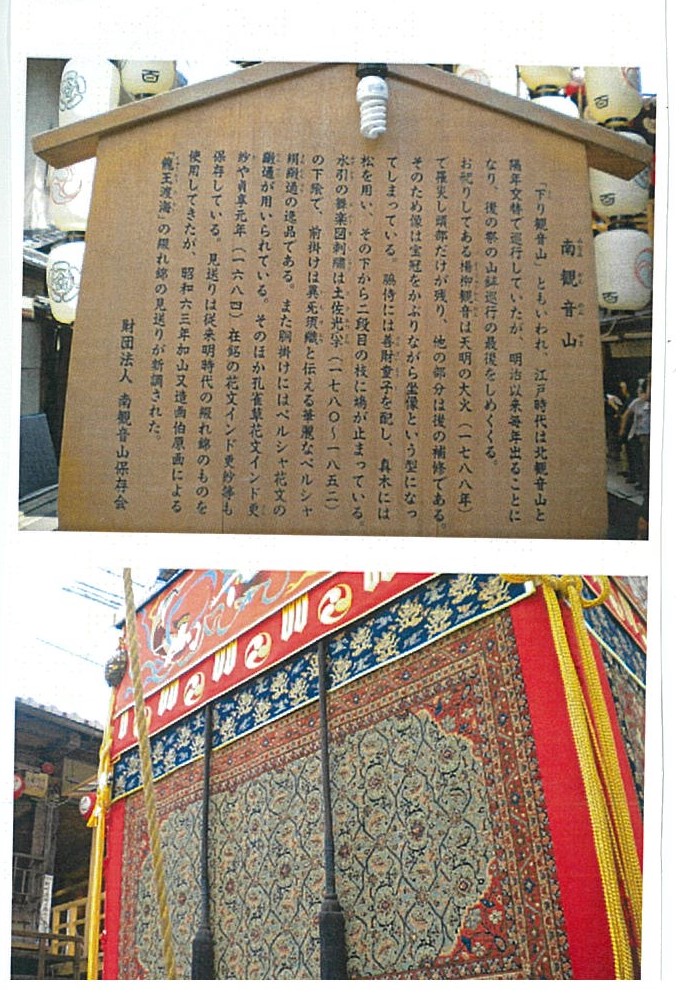 南観音山
「下り観音山」ともいわれ、江戸時代は北観音山と
隔年交替で巡行していたが、明治以来毎年出ることに
なり、後の祭の山鉾巡行の最後をしめくくる。
お祀りしてある楊柳観音は天明の大火(一七八八年)
で罹災し頭部だけが残り、他の部分は後の補修である。
そのため像は宝冠をかぶりながら坐像という型になっ
てしまっている。脇侍には善財童子を配し、真木には
松を用い、その下から二段目の枝に鳩が止まっている。
水引の舞楽図刺繍は土佐光孚(一七八〇〜一八五二)
の下絵で、前掛けは異无須織と伝える華麗なペルシャ
絹緞通の逸品である。また胴掛けにはペルシャ花文の
緞通が用いられている。そのほか孔雀草花文インド更
紗や貞享元年(一六八四)在銘の花文インド更紗等も
保存している。見送りは従来明時代の綴れ錦のものを
使用してきたが、昭和六三年加山又造画伯原画による
「龍王渡海」の綴れ錦の見送りが新調された。
財団法人 南観音山保存会
百
百
百